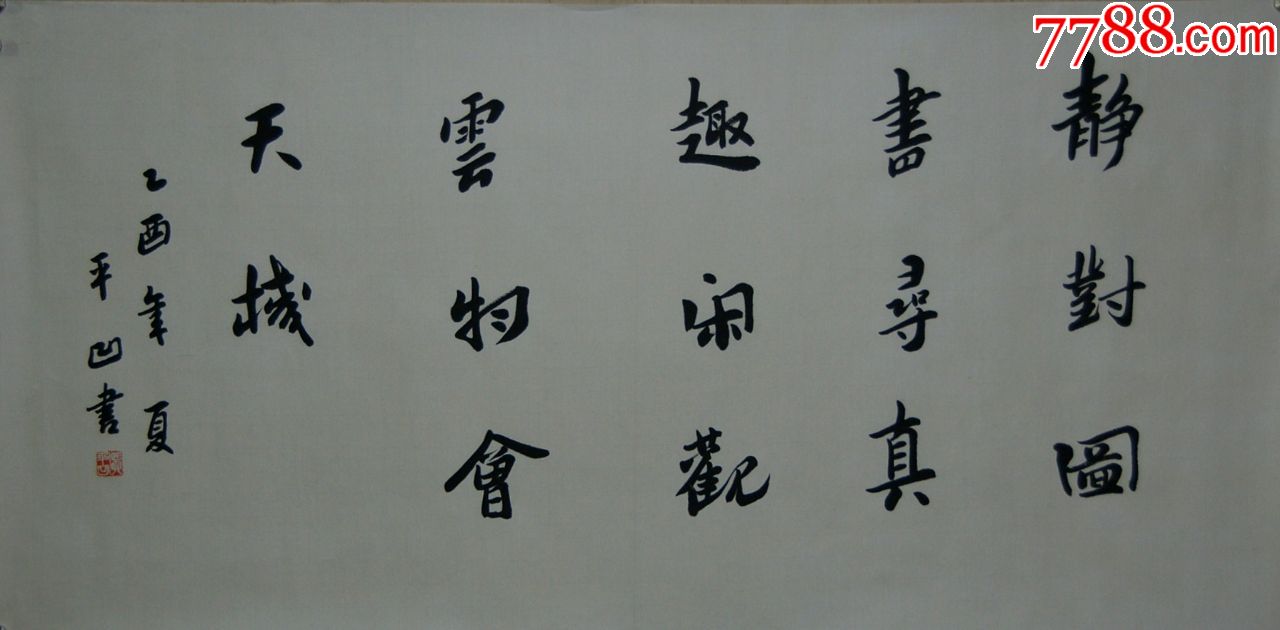 7788.com
静對圖
書尋真
趣闲觀
雲物會
天機
乙酉年夏
平凹書